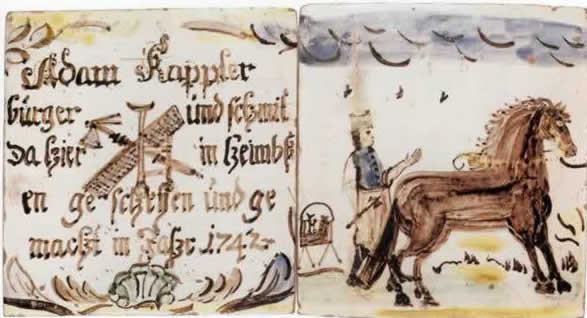 Adam Kappler
bürger und schmit
da hier in heimbß
en ge schehen und ge
macht im Jahr 1742